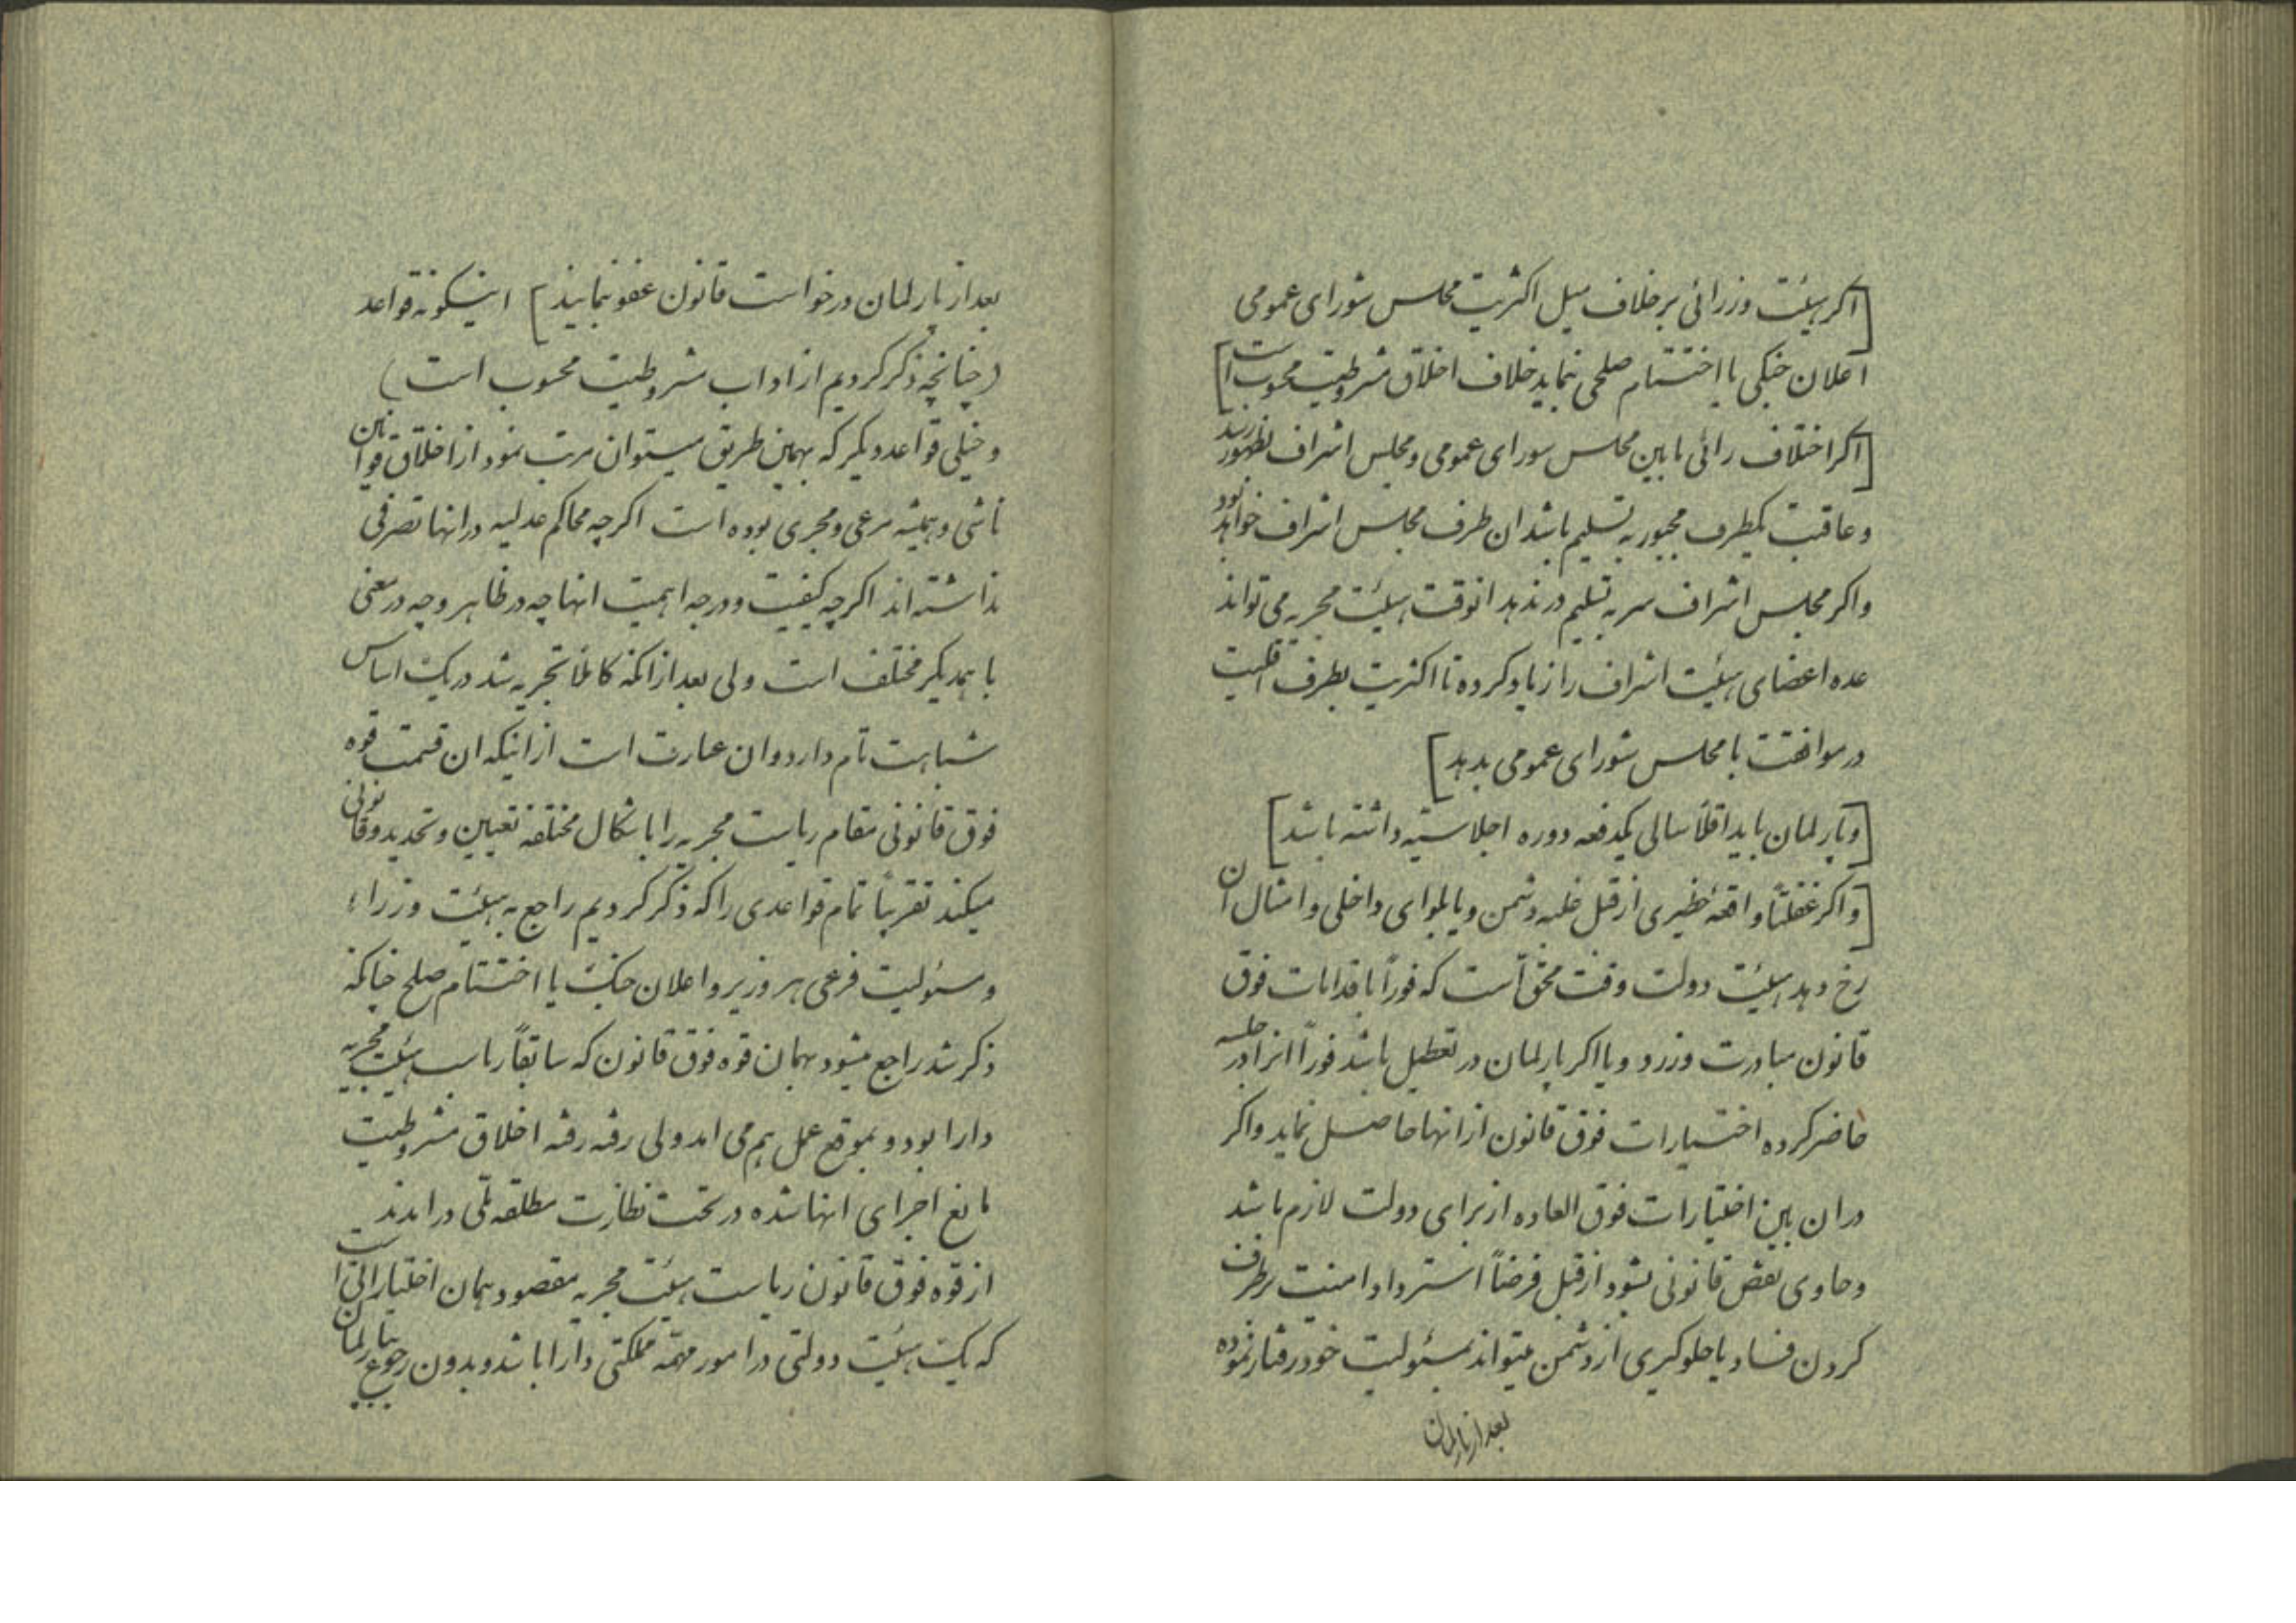 [اکر هیئت وزرائی برخلاف میل اکثریت مجلس شورای عمومی
اعلان جنکی یا اختتام صلحی بنماید خلاف اخلاق مشروطیت محسوب است]
[اکر اختلاف رائی مابین مجلس شورای عمومی و مجلس اشراف بظهور رسید
و عاقبت یکطرف مجبور به تسلیم باشد ان طرف مجلس اشراف خواهد بود
واکر مجلس اشراف سر به تسلیم درندهد انوقت هیئت مجریه می تواند
عده اعضای هیئت اشراف را زیاد کرده تا اکثریت بطرف اقلیت
در موافقت با مجلس شورای عمومی بدهد]
[و پارلمان باید اقلاً سالی یکدفعه دوره اجلاسیه داشته باشد]
[و اکر غفلتاً واقعهٔ خطیری از قبل غلبه دشمن و یا بلوای داخلی و امثال ان
رخ دهد هیئت دولت وقت محق است که فوراً باقدامات فوق
قانون مبادرت ورزد و یا اکر پارلمان در تعطیل باشد فوراً انرا در جلسه
حاضر کرده اختیارات فوق قانون از انها حاصل نماید واکر
در ان بین اختیارات فوق العاده از برای دولت لازم باشد
و حاوی نقض قانونی بشود از قبل فرضاً استرداد امنیت برطرف
کردن فساد یا جلوکیری از دشمن میتواند بمسئولیت خود رفتار نموده
بعد از پارلمان
بعد از پارلمان درخواست قانون عفو بنماید] اینکونه قواعد
(چنانچه ذکر کردیم از اداب مشروطیت محسوب است)
و خیلی قواعد دیکر که بهمین طریق میتوان مرتب نمود از اخلاق قوانین
ناشی و همیشه مرعی و مجری بوده است اکرچه محاکم عدلیه در انها تصرفی
نداشته اند اکرچه کیفیت و درجه اهمیت انها چه در ظاهر و چه در معنی
با همدیکر مختلف است ولی بعد از انکه کاملا تجربه شد در یک اساس
شباهت تام دارد و ان عبارت است از اینکه ان قسمت قوه
فوق قانونی مقام ریاست مجریه را باشکال مختلفه تعیین و تحدید و قانونی
میکند تقریباً تمام قواعدی را که ذکر کردیم راجع به هیئت وزراء
و مسئولیت فرعی هر وزیر و اعلان جنک یا اختتام صلح چنانکه
ذکر شد راجع میشود بهمان قوه فوق قانون که سابقاً ریاست هیئت مجریه
دارا بود و بموقع عمل هم می امد ولی رفته رفته اخلاق مشروطیت
مانع اجرای انها شده در تحت نظارت مطلقه ملی درامدند
از قوه فوق قانون ریاست هیئت مجریه مقصود همان اختیاراتی است
که یک هیئت دولتی در امور مهمه مملکتی دارا باشد و بدون رجوع بپارلمان